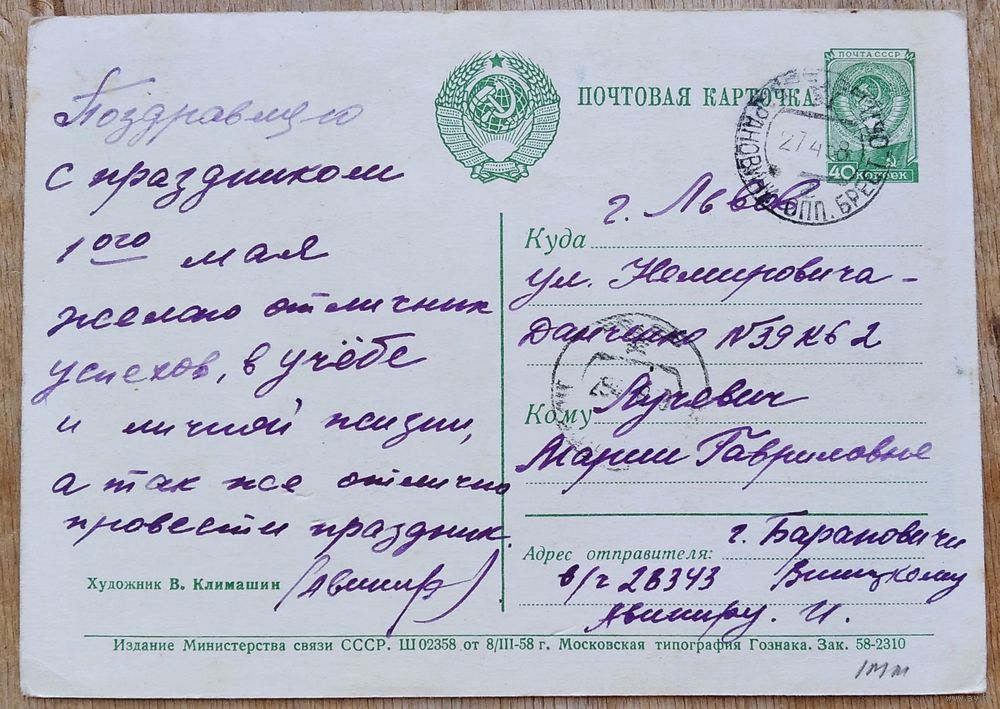 ПОЧТА СССР
40 КОПЕЕК
ПОЧТОВАЯ КАРТОЧКА
27 4 58
Поздравляю
с праздником
1ого мая
желаю отличник
успехов, в учёбе
и личной жизни,
а так же отлично
провести праздник.
(Авинир)
Художник В. Климашин
Куда г. Львов
ул. Немировича-
Данченко N 39 к6 2
Кому Луцевич
Марии Гавриловне
Адрес отправителя: г. Барановичи
в/ч 28343 Вишцкому
Авиниру. И.
Издание Министерства связи СССР. Ш 02358 от 8/III-58 г. Московская типография Гознака. Зак. 58-2310
1мм